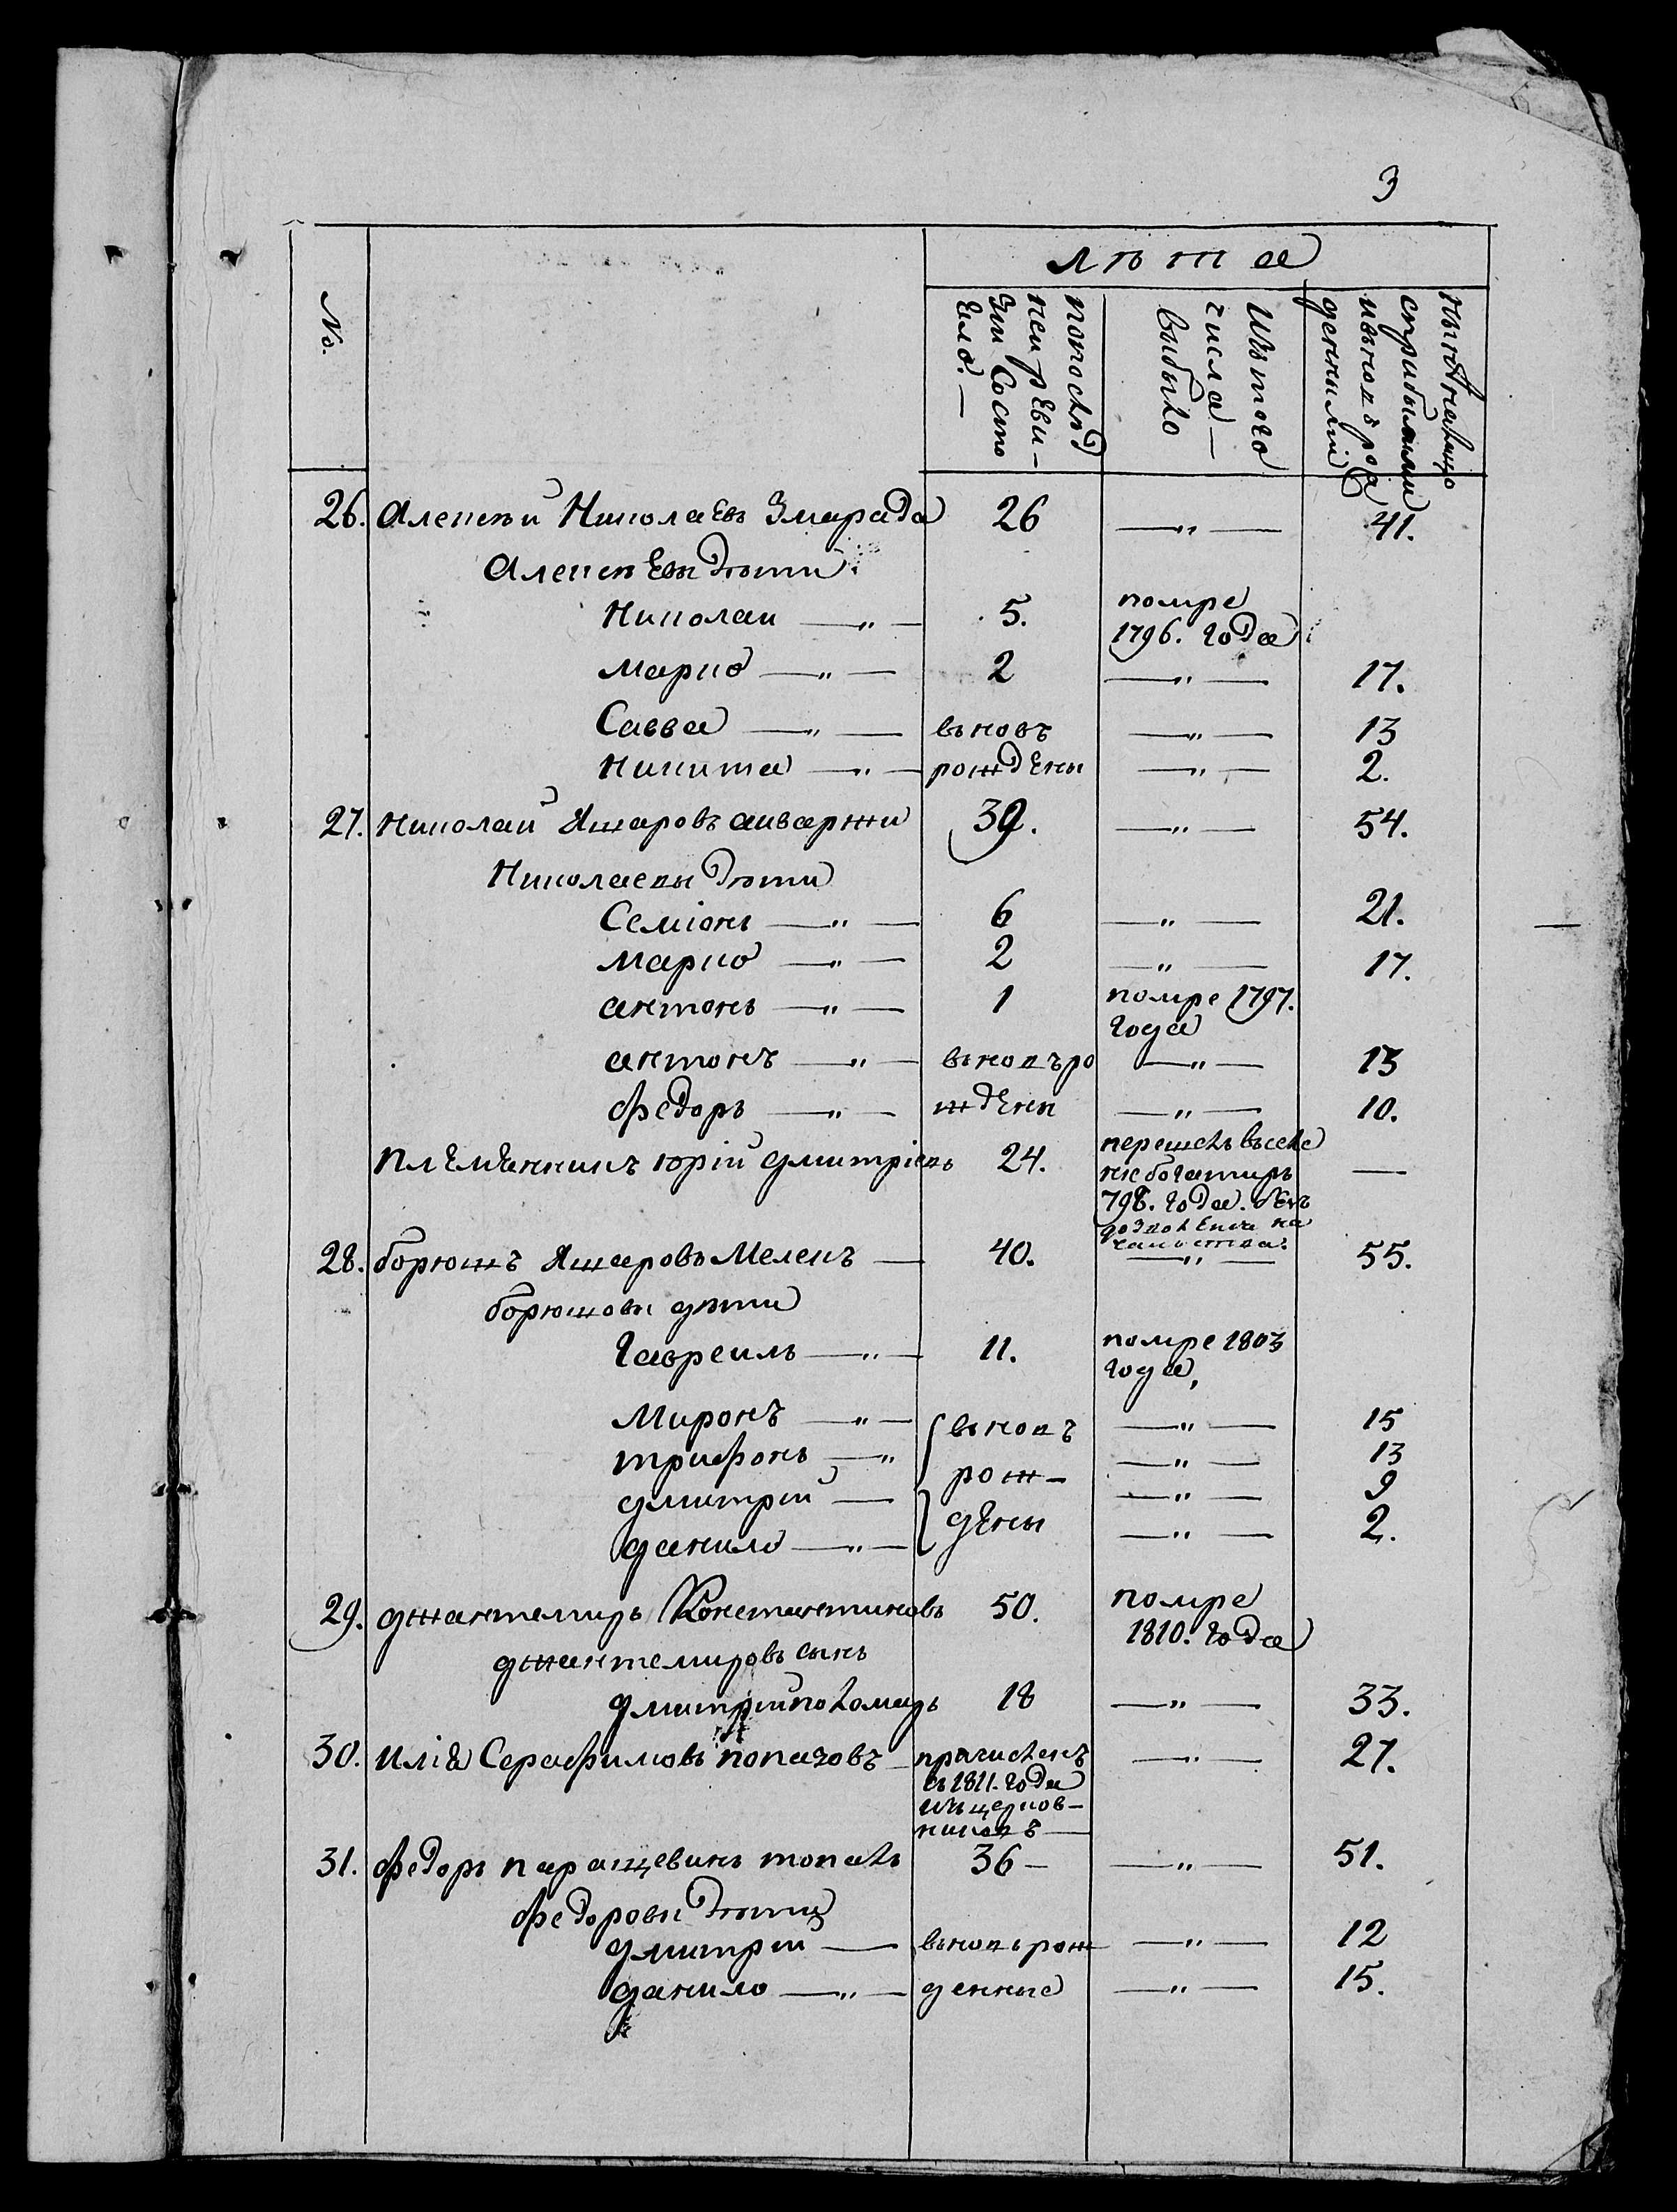 3
лѣта
No.
попослѣд
неи реви-
зіи Состо
яло.—
Изъ того
числа—
выбыло
ныне на лицо
сприбылыми
ивновь рож
денными
26. Алексѣй Николаевъ Змарада 26 —„— 41.
Алексѣевы дѣти.
Николаи —„— 5. помре
1796. года
Марко —„— 2 —„— 17.
Савва —„— вьновъ —„— 13
Никита —„— рождены —„— 2.
27. Николай Яшаровъ аиваржи 39. —„— 54.
Николаевы дѣти
Семіонъ —„— 6 —„— 21.
Марко —„— 2 —„— 17.
антонъ —„— 1 помре 1797.
года
антонъ —„— вьновъ ро —„— 13
федоръ —„— ждены —„— 10.
племенникъ юрій дмитріевъ 24. перешелъ въселе —
ніе богатыръ
798. года. безъ
дозволенія на
чальства.
28. борюшъ Яшаровъ Мелекъ — 40. —„— 55.
борюшовы дѣти
Гавреилъ —„— 11. помре 1803
года,
Миронъ —„— вьновъ —„— 15
трифонъ —„ рож- —„— 13
дмитрій — дены —„— 9
данило —„— —„— 2.
29. джантемиръ Константиновъ 50. помре
1810. года
джантемировъ сынъ
дмитрій 18 —„— 33.
30. илія Серафимовъ попазовъ — причисленъ —„— 27.
въ 1811. года
изъ церков-
никовъ —
31. федоръ паращевинъ топалъ 36 — —„— 51.
федоровы дѣти
дмитрій — вьновь рож —„— 12
данило —„— денные —„— 15.